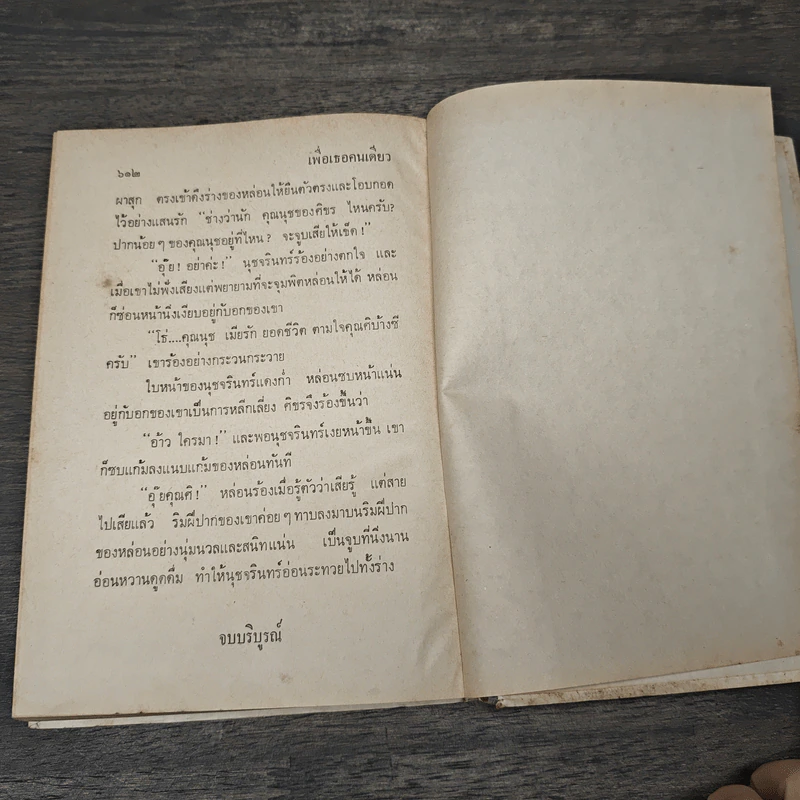 เพื่อเธอคนเดียว
๖๑๒
ผาสุก ตรงเข้าดึงร่างของหล่อนให้ยืนตัวตรงและโอบกอด
ไว้อย่างแสนรัก "ช่างว่านัก คุณนุชของศิขร ไหนครับ?
ปากน้อยๆ ของคุณนุชอยู่ที่ไหน? จะจูบเสียให้เข็ด!"
"อุ๊ย! อย่าค่ะ!" นุชจรินทร์ร้องอย่างตกใจ และ
เมื่อเขาไม่ฟังเสียงแต่พยายามที่จะจุมพิตหล่อนให้ได้ หล่อน
ก็ซ่อนหน้านิ่งเงียบอยู่กับอกของเขา
"โธ่....คุณนุช เมียรัก ยอดชีวิต ตามใจคุณศิบ้างซี
ครับ" เขาร้องอย่างกระวนกระวาย
ใบหน้าของนุชจรินทร์แดงก่ำ หล่อนซบหน้าแน่น
อยู่กับอกของเขาเป็นการหลีกเลี่ยง ศิขรจึงร้องขึ้นว่า
"อ้าว ใครมา!" และพอนุชจรินทร์เงยหน้าขึ้น เขา
ก็ซบแก้มลงแนบแก้มของหล่อนทันที
"อุ๊ยคุณศิ!" หล่อนร้องเมื่อรู้ตัวว่าเสียรู้ แต่สาย
ไปเสียแล้ว ริมฝีปากของเขาค่อยๆ ทาบลงมาบนริมฝีปาก
ของหล่อนอย่างนุ่มนวลและสนิทแน่น เป็นจูบที่นิ่งนาน
อ่อนหวานดูดดื่ม ทำให้นุชจรินทร์อ่อนระทวยไปทั้งร่าง
จบบริบูรณ์